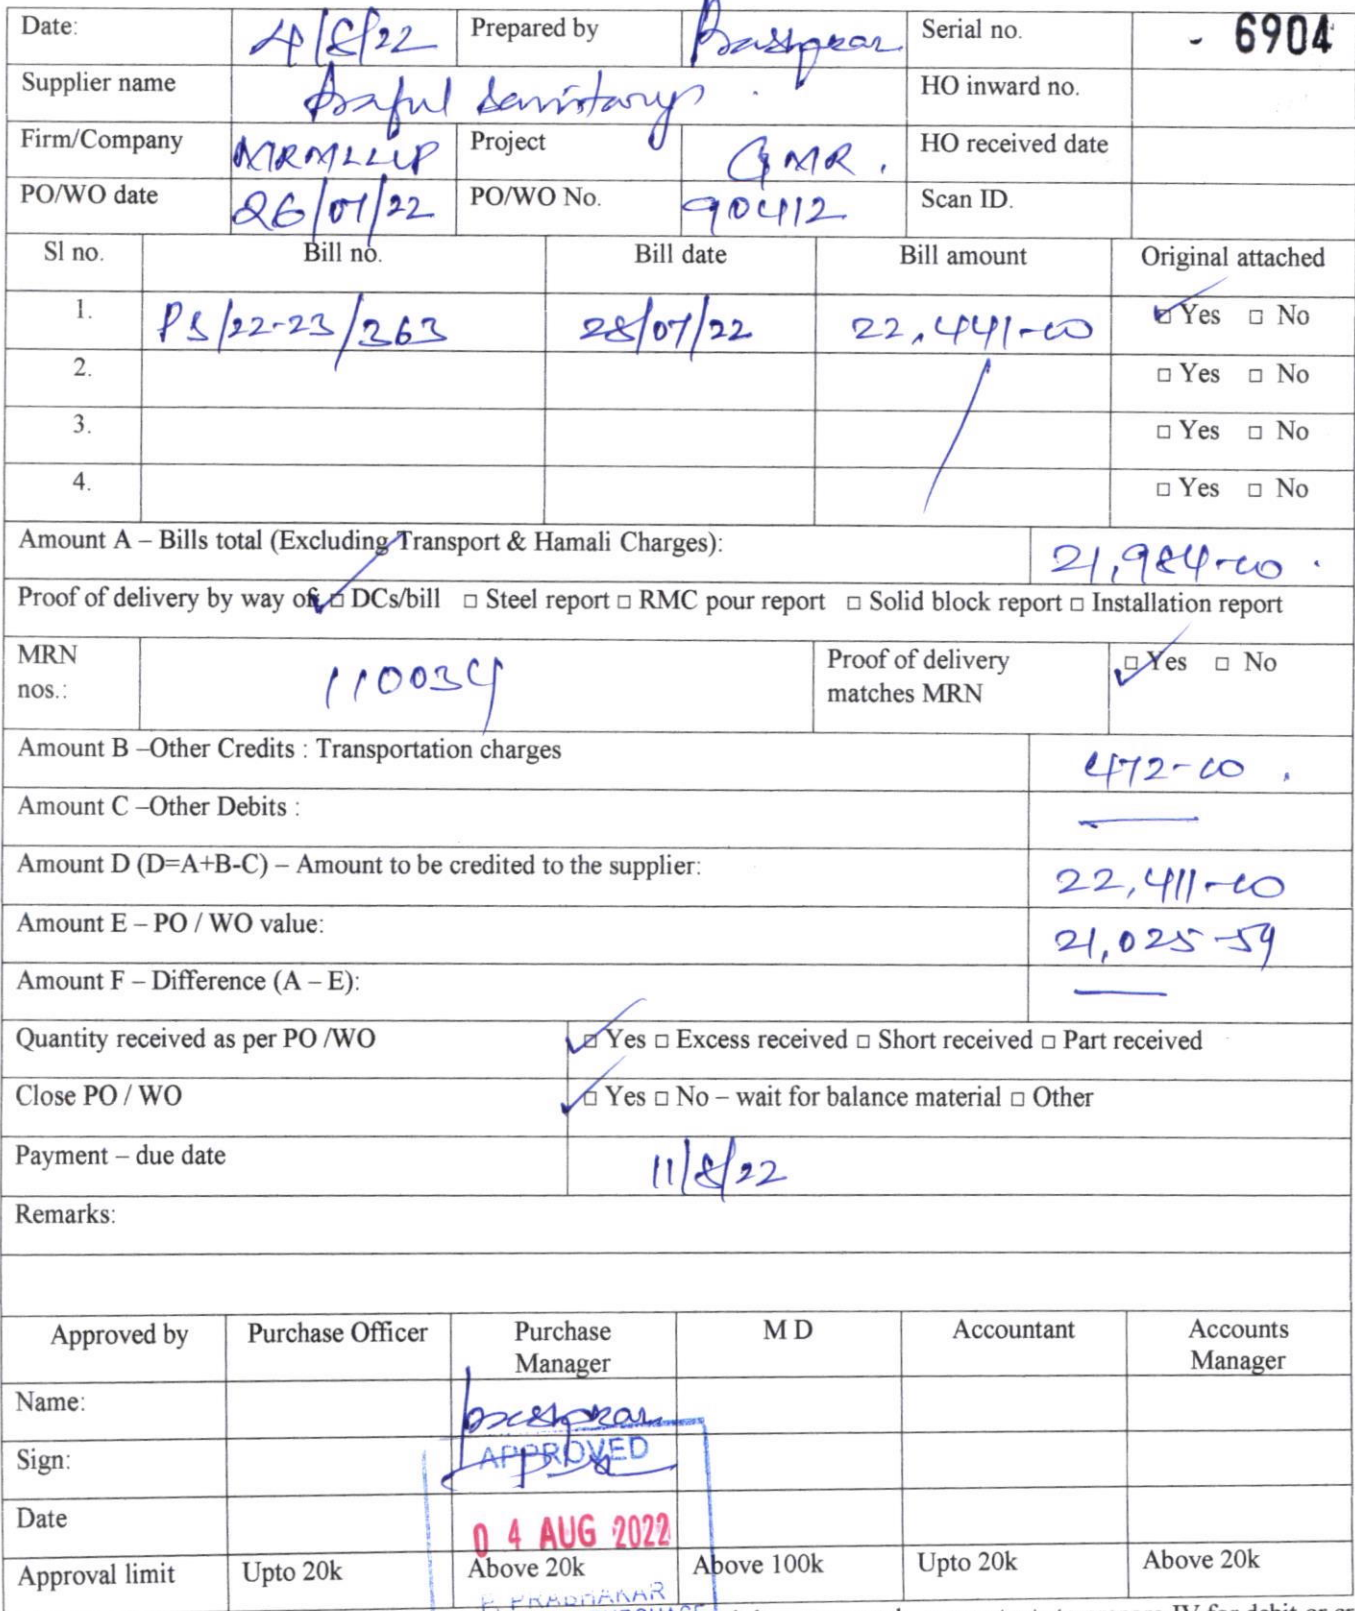 Date: 4/8/22 Prepared by Serial no. - 6904
Supplier name Praful Sanitarys. HO inward no.
Firm/Company MRMLLP Project GMR. HO received date
PO/WO date 26/07/22 PO/WO No. 90412 Scan ID.
Sl no. Bill no. Bill date Bill amount Original attached
1. PS/22-23/363 28/07/22 22,441-00 ☑ Yes □ No
2. □ Yes □ No
3. □ Yes □ No
4. □ Yes □ No
Amount A – Bills total (Excluding Transport & Hamali Charges): 21,984-00.
Proof of delivery by way of: ☑ DCs/bill □ Steel report □ RMC pour report □ Solid block report □ Installation report
MRN nos.: 110034 Proof of delivery matches MRN ☑ Yes □ No
Amount B –Other Credits : Transportation charges 472-00.
Amount C –Other Debits : —
Amount D (D=A+B-C) – Amount to be credited to the supplier: 22,411-00
Amount E – PO / WO value: 21,025-59
Amount F – Difference (A – E): —
Quantity received as per PO /WO ☑ Yes □ Excess received □ Short received □ Part received
Close PO / WO ☑ Yes □ No – wait for balance material □ Other
Payment – due date 11/8/22
Remarks:
Approved by Purchase Officer Purchase Manager M D Accountant Accounts Manager
Name:
Sign: APPROVED
Date 04 AUG 2022
Approval limit Upto 20k Above 20k Above 100k Upto 20k Above 20k
P. PRABHAKAR